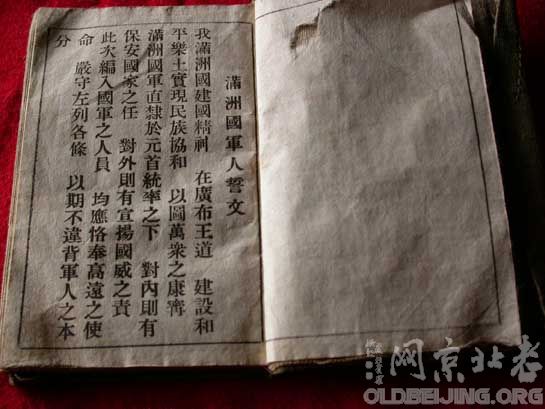 滿洲國軍人誓文
我滿洲國建國精神 在廣布王道 建設和
平樂土實現民族協和 以圖萬衆之康寗
滿洲國軍直隸於元首統率之下 對內則有
保安國家之任 對外則有宣揚國威之責
此次編入國軍之人員 均應恪奉高遠之使
命 嚴守左列各條 以期不違背軍人之本
分
老北京网
OLDBEIJING.ORG